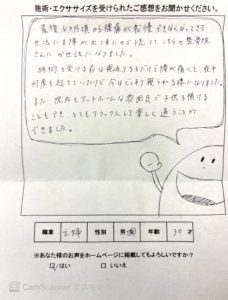 施術・エクササイズを受けられたご感想をお聞かせください。
産後4か月頃から腰痛が我慢できなくなってきて
生活に支障が出て来たので思いきってこちらの整骨院
さんにお世話になりました。
施術を受ける前は寝返りするだけで腰が痛くて、夜中
何度も起きていたけど今はぐっすり眠れる様になりました。
また、院内もアットホームな雰囲気で子供を預ける
こともでき、とてもリラックスして楽しく通うことが
できました。
職業 主婦 性別 男・女 年齢 30才
※あなた様のお声をホームページに掲載してもよろしいですか?
☑はい □いいえ
CamScanner でスキャン